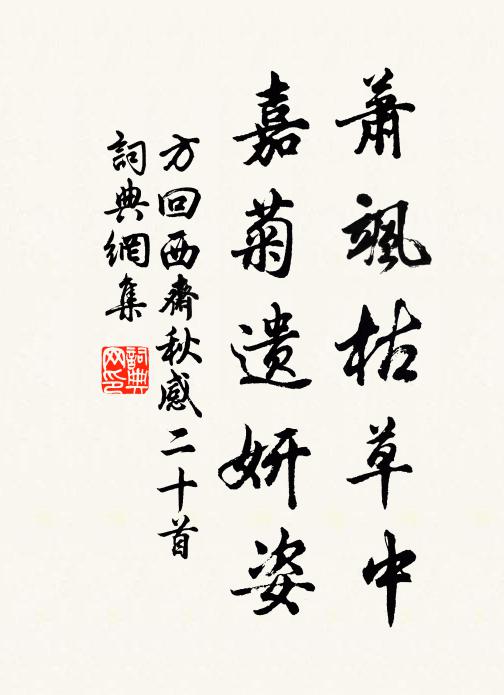 萧飒枯草中
嘉菊遗妍姿
方回西齋秋感二十首
詞典網集
詞典网印